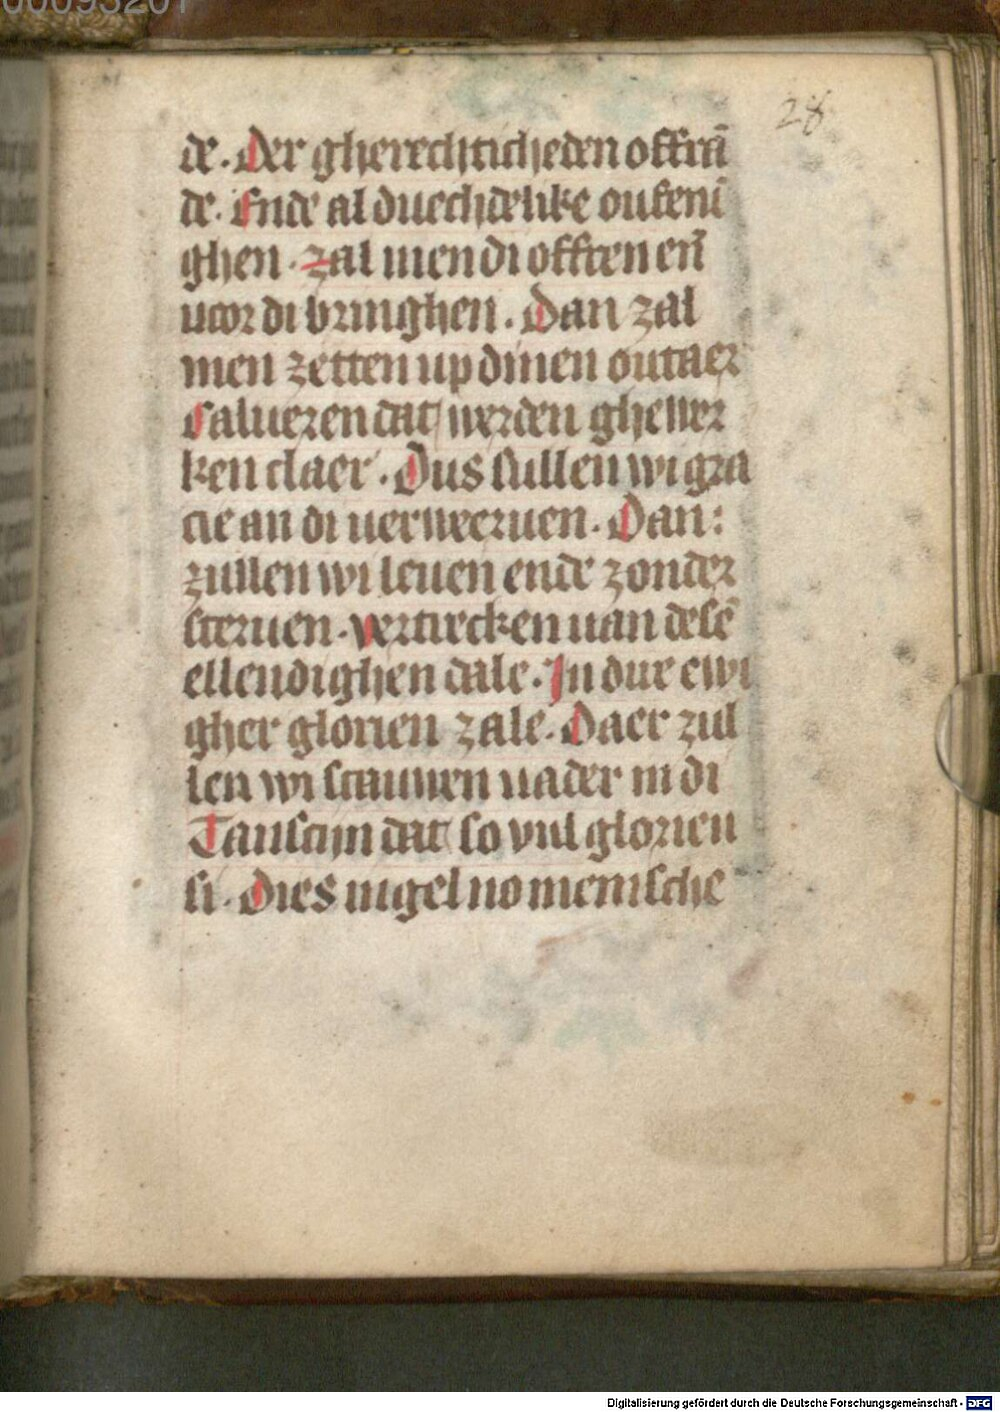 00093201
28
de. Der gherechticheden offrā
de. Ende al duechdelike oufeni
ghen. zal men di offren eñ
voor di bringhen. Dan zal
men zetten up dinen outaer
Calueren dat werden ghewer
ken claer. Dus sullen wi gra
cie an di uerweeruen. Dan:
zullen wi leuen ende zonder
steruen. vertrecken uan desē
ellendighen dale. In dure ewi
gher glorien zale. Daer zul
len wi scauwen uader in di
Tanscijn dat so vul glorien
si. Dies nigel no mensche
Digitalisierung gefördert durch die Deutsche Forschungsgemeinschaft - DFG